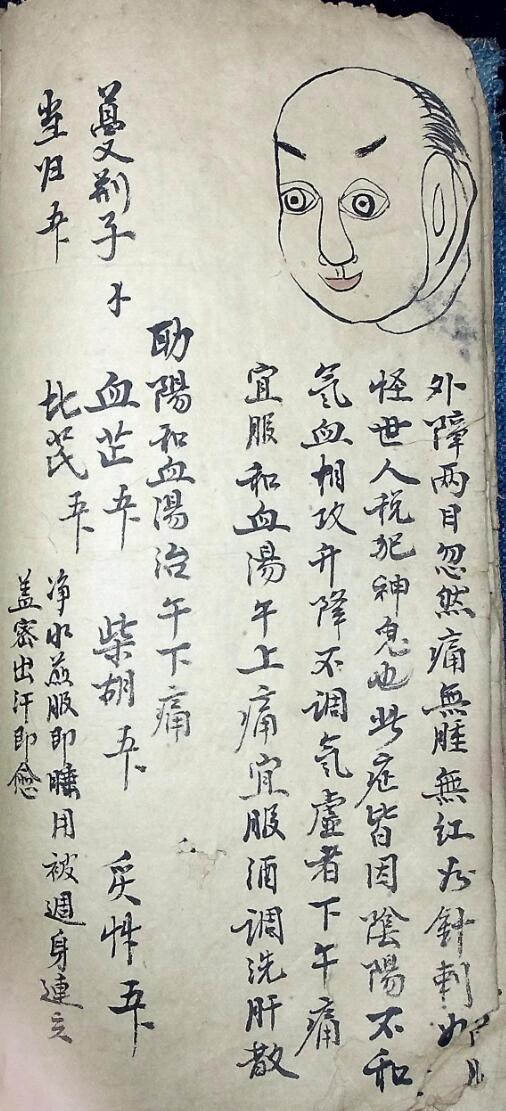 外障两目忽然痛無腫無红如針刺
怪世人税犯神鬼也此症皆因陰陽不和
氣血相攻升降不調氣虛者下午痛
宜服和血湯午上痛宜服酒調洗肝散
助陽和血湯治午下痛
蔓荆子 血芷 柴胡
当归
净水煎服即睡用被週身連
盖密出汗即愈